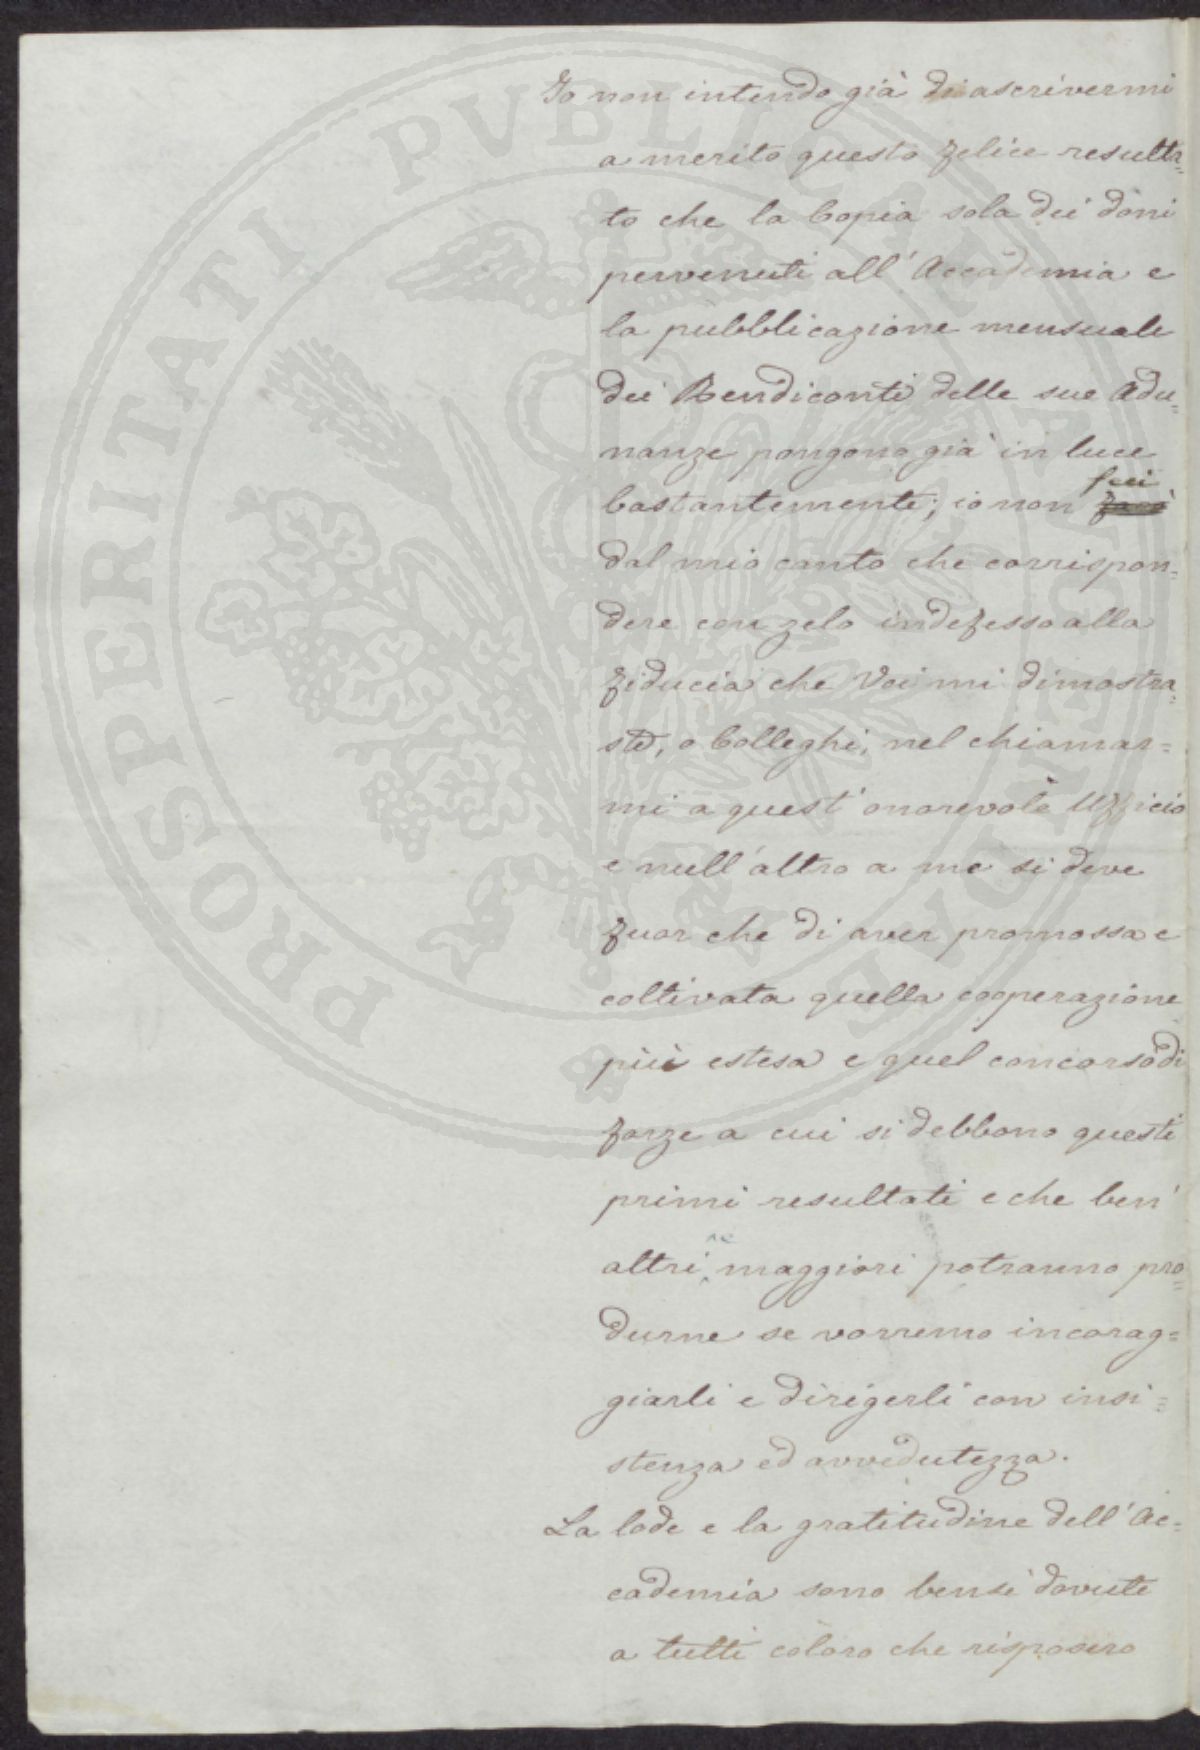 Io non intendo già di ascrivermi
a merito questo felice resulta=
to che la Copia sola dei doni
pervenuti all'Accademia e
la pubblicazione mensuale
dei Rendiconti delle sue Adu=
nanze pongono già in luce
feci
bastantemente; io non
dal mio canto che corrispon=
dere con zelo indefesso alla
fiducia che Voi mi dimostra=
ste, o Colleghi, nel chiamar=
mi a quest'onorevole Ufficio
e null'altro a me si deve
fuor che di aver promossa e
coltivata quella cooperazione
più estesa e quel concorso di
forze a cui si debbono questi
primi resultati e che ben
ne
altri maggiori potranno pro=
durne se vorremo incorag=
giarli e dirigerli con insi=
stenza ed avvedutezza.
La lode e la gratitudine dell'Ac=
cademia sono bensì dovute
a tutti coloro che risposero
PROSPERITATI PUBLICAE